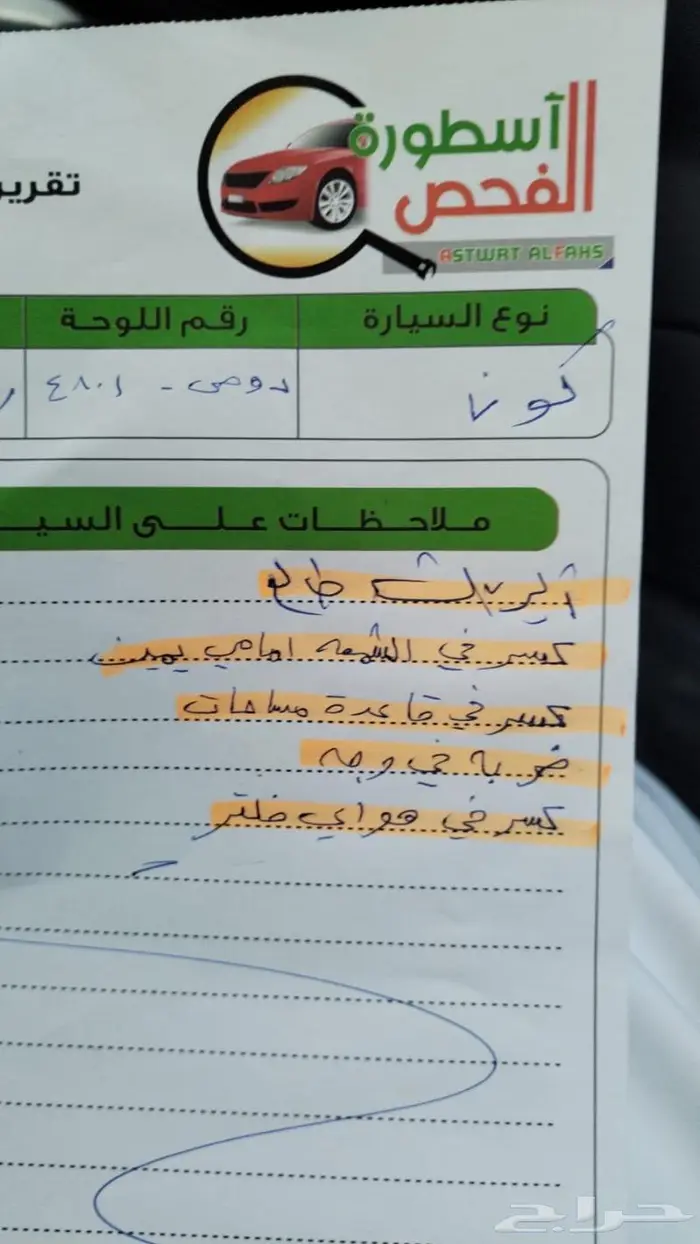 أسطورة
الفحص
ASTWRT ALFAHS
تقرير
نوع السيارة
رقم اللوحة
دوص - ٤٨٠١
ملاحظات على السيـ
طالع
كسر في الشمعه امامي يمين
كسر في قاعدة مساحات
ضربة في وجه
كسر في هواي فلتر
حراج